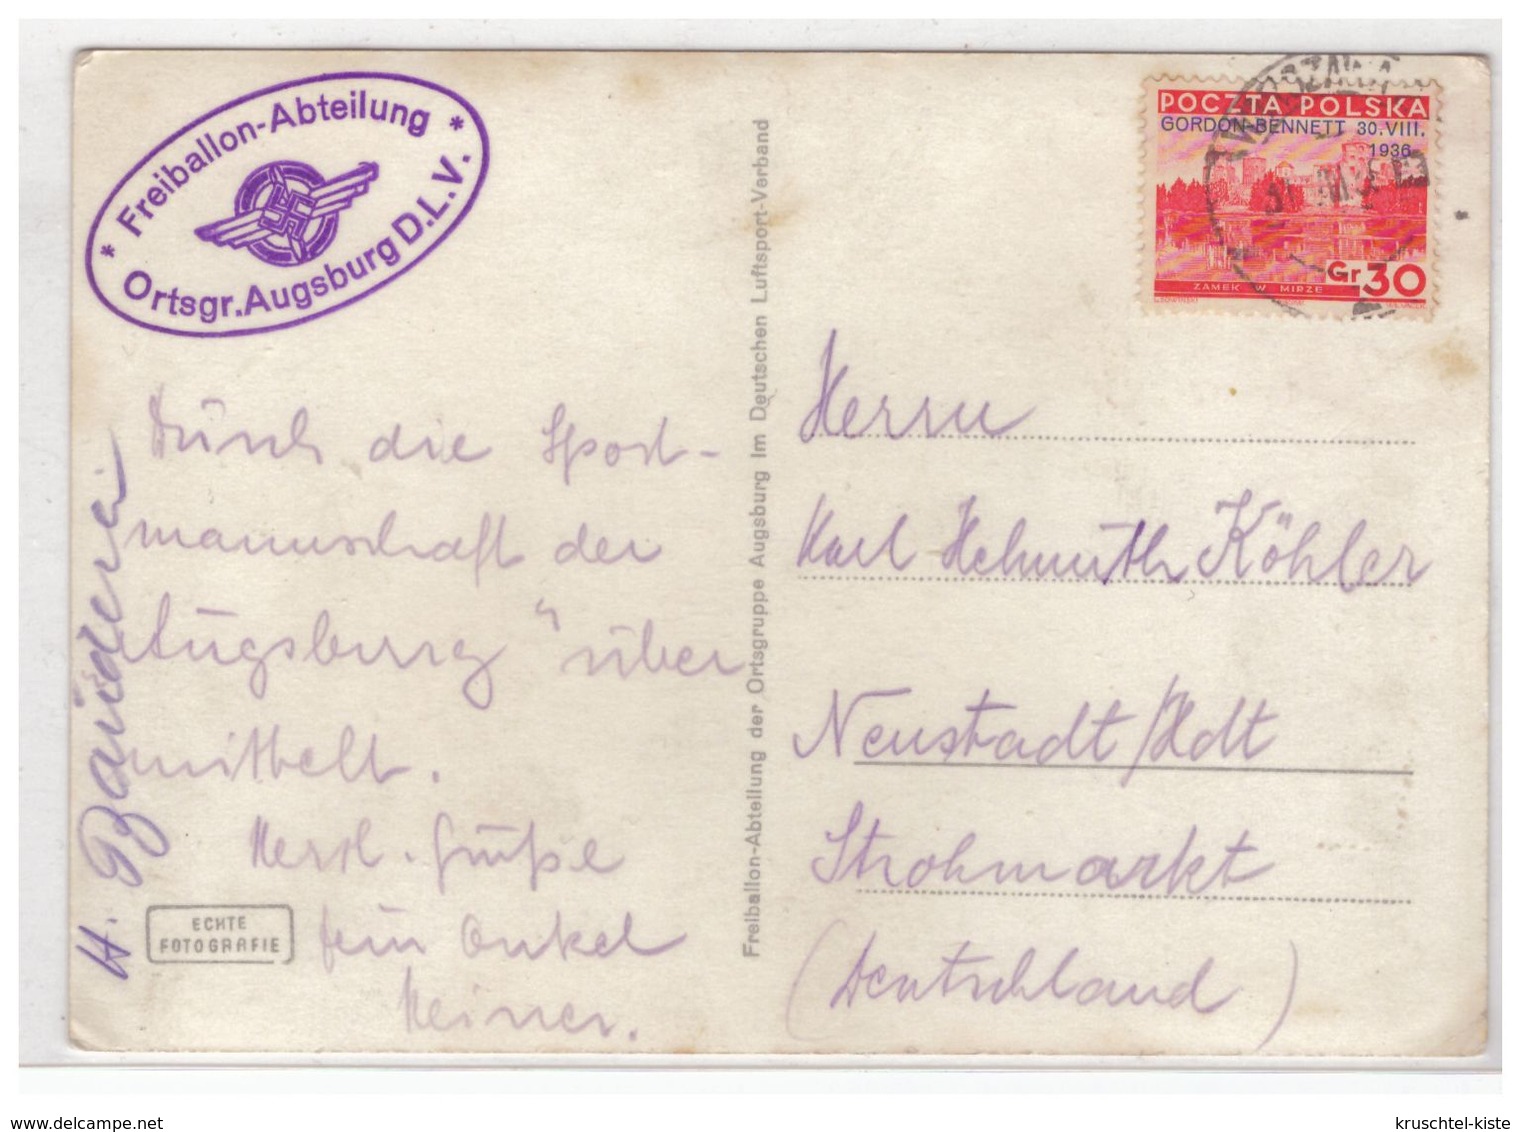 * Freiballon-Abteilung *
Ortsgr. Augsburg D.L.V.
POCZTA POLSKA
GORDON-BENNETT 30.VIII.
1936
ZAMEK W MIRZE
Gr 30
WARSZAWA
Durch die Sport-
mannschaft der
Augsburg" über
mittelt.
Herzl. Grüße
Dein Onkel
Heiner.
H.
ECHTE
FOTOGRAFIE
Freiballon-Abteilung der Ortsgruppe Augsburg im Deutschen Luftsport-Verband
Herrn
Karl Helmuth Köhler
Neustadt/Hdt
Strohmarkt
(Deutschland)
www.delcampe.net
kruschtel-kiste